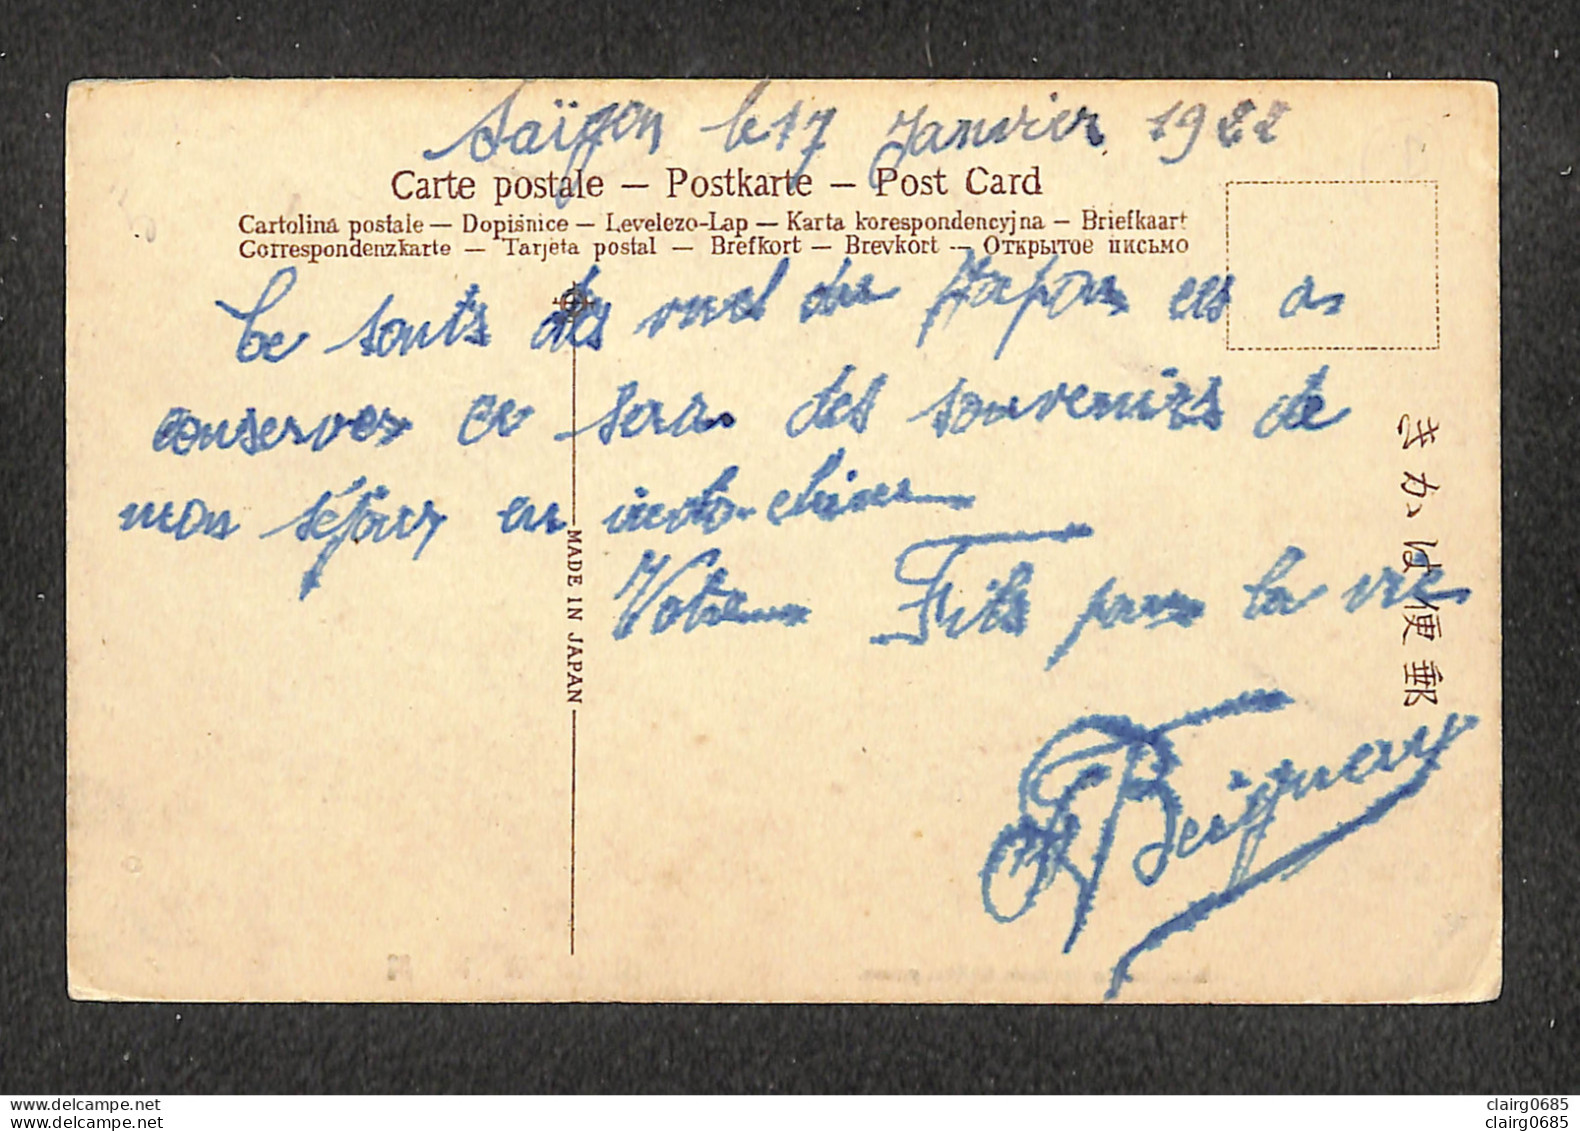 Saïgon le 17 Janvier 1922
Carte postale — Postkarte — Post Card
Cartolina postale — Dopisnice — Levelezo-Lap — Karta korespondencyjna — Briefkaart
Correspondenzkarte — Tarjeta postal — Brefkort — Brevkort — Открытое письмо
Ce sonts des vues du Japon et a
conserver ce sera des souvenirs de
mon séjour en indo-chine
Votre Fils pour la vie
Beignau
MADE IN JAPAN
きかは便郵
www.delcampe.net
www.delcampe.net
clairg0685
clairg0685